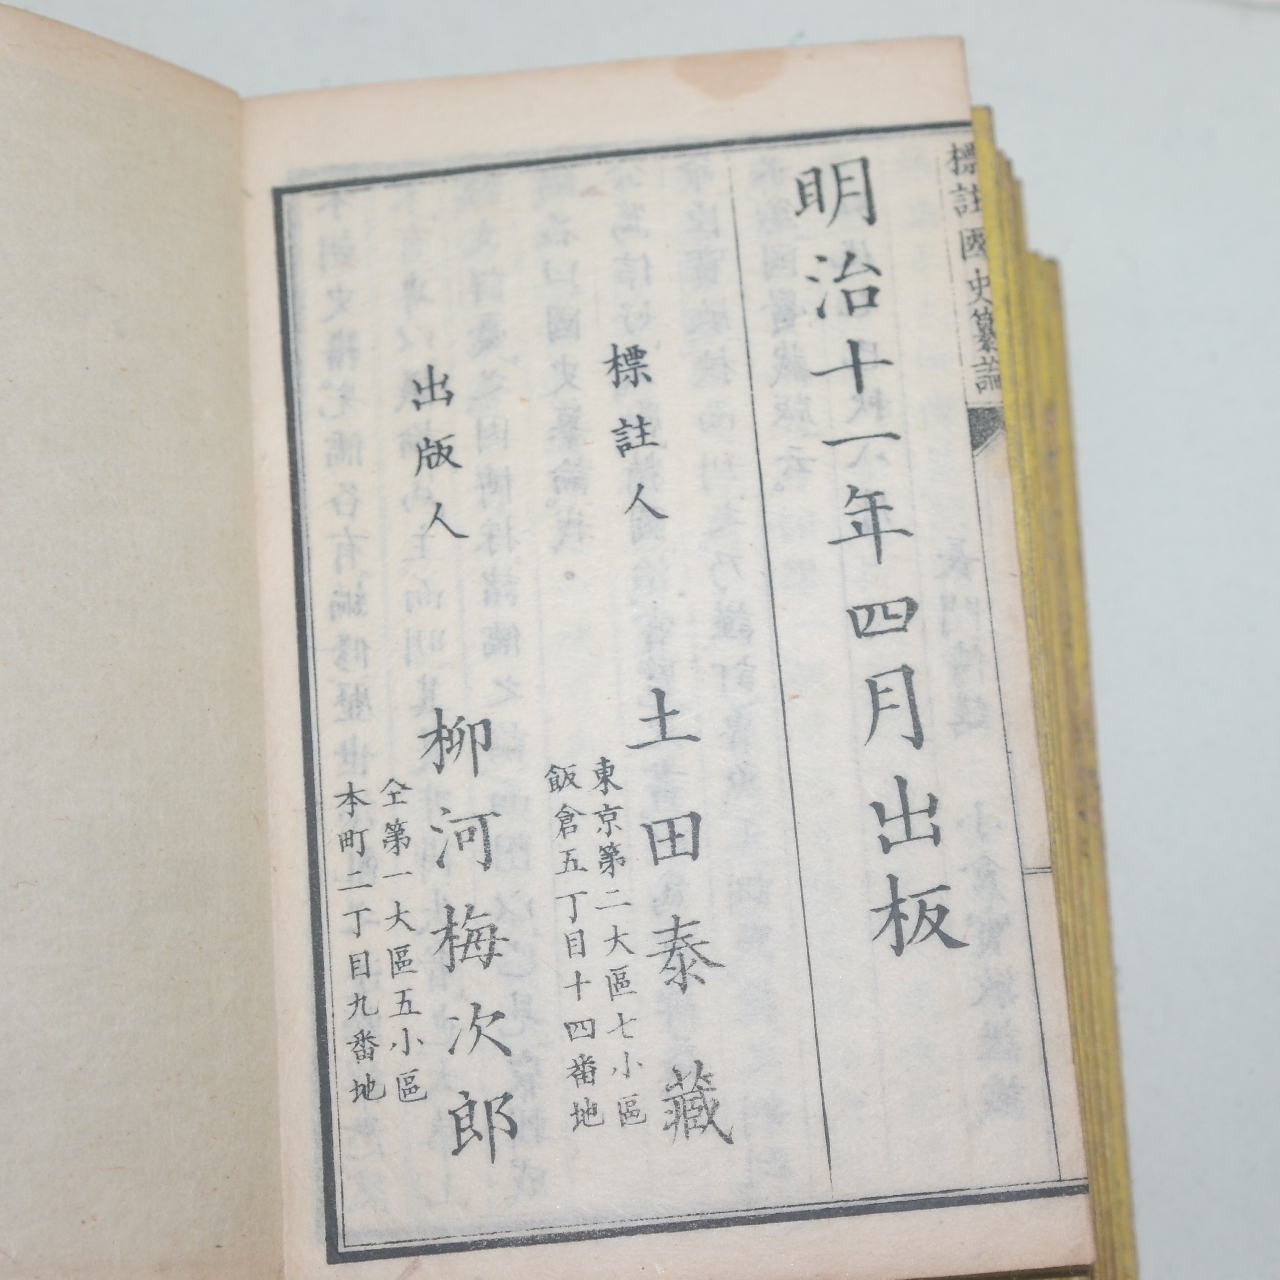 標註國史纂論
明治十一年四月出板
標註人 土田泰藏
東京第二大區七小區
飯倉五丁目十四番地
出版人 柳河梅次郎
仝第一大區五小區
本町二丁目九番地